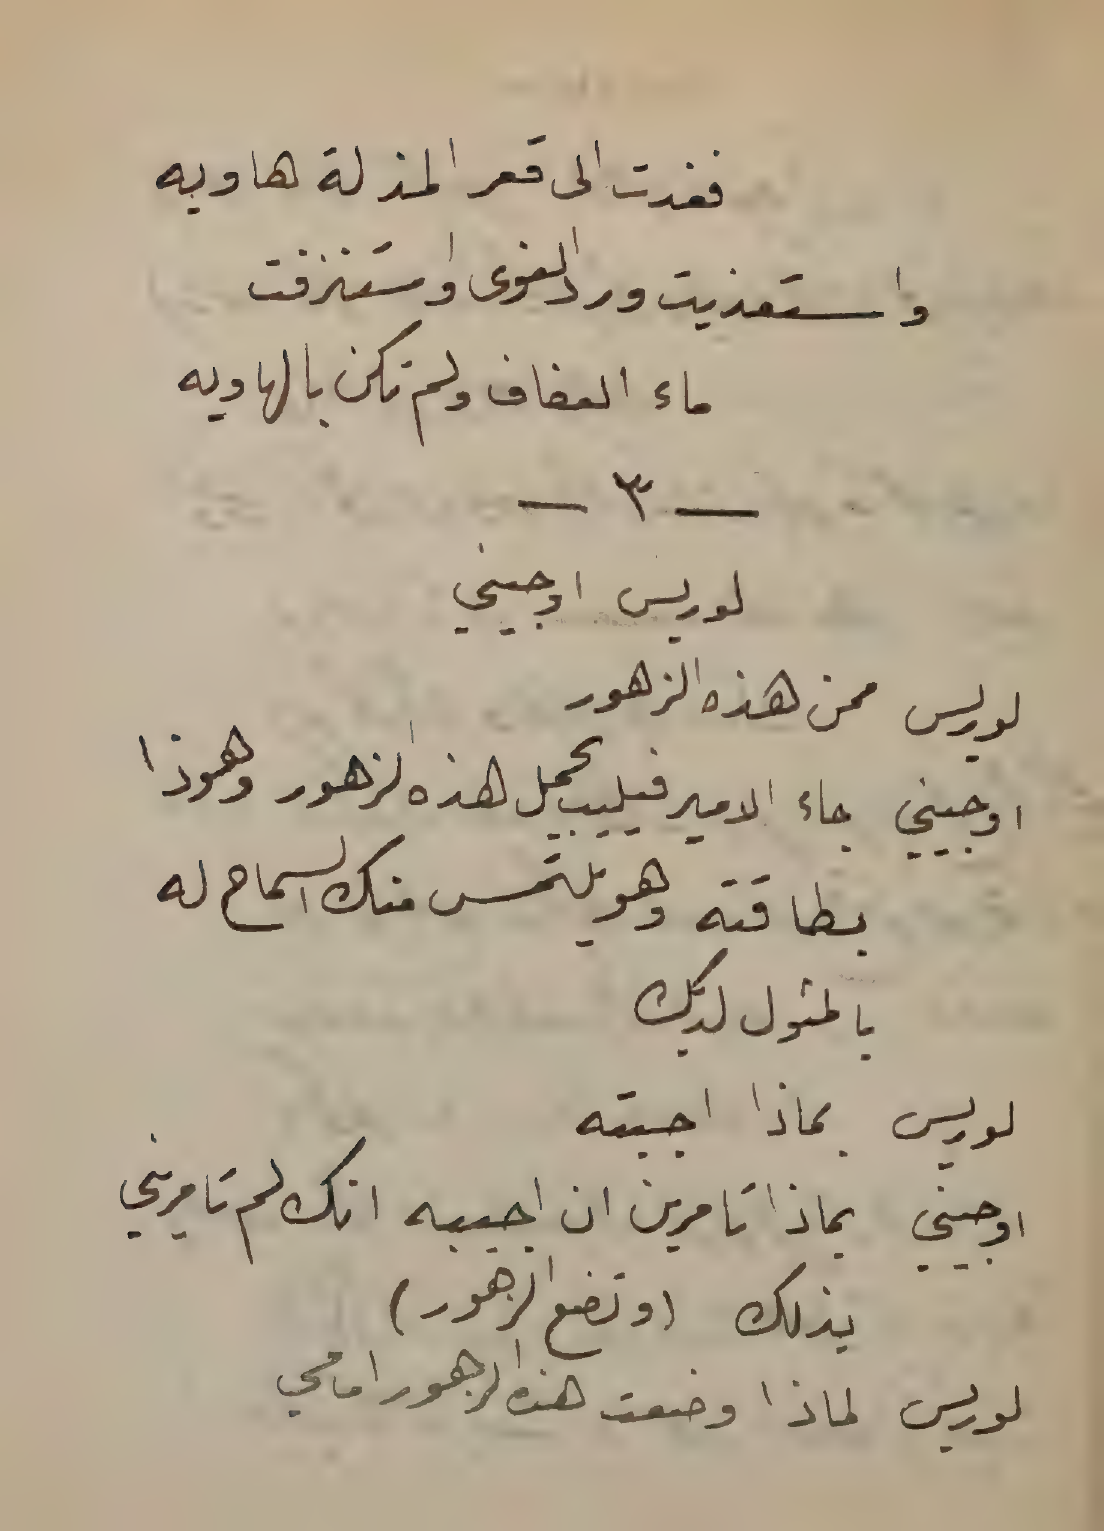 فغدت الى قعر المذلة هاويه
واستعذبت ورد الغوى واستنزفت
ماء العفاف ولم تكن بالهاويه
— ٣ —
لوريس اوجيني
لوريس ممن هذه الزهور
اوجيني جاء الامير فيليب يحمل هذه الزهور وهوذا
بطاقته وهو يلتمس منك السماح له
بالمثول لديك
لوريس بماذا اجبته
اوجيني بماذا تامرين ان اجيبه انك لم تامريني
بذلك (وتضع الزهور)
لوريس لماذا وضعت هذه الزهور امامي